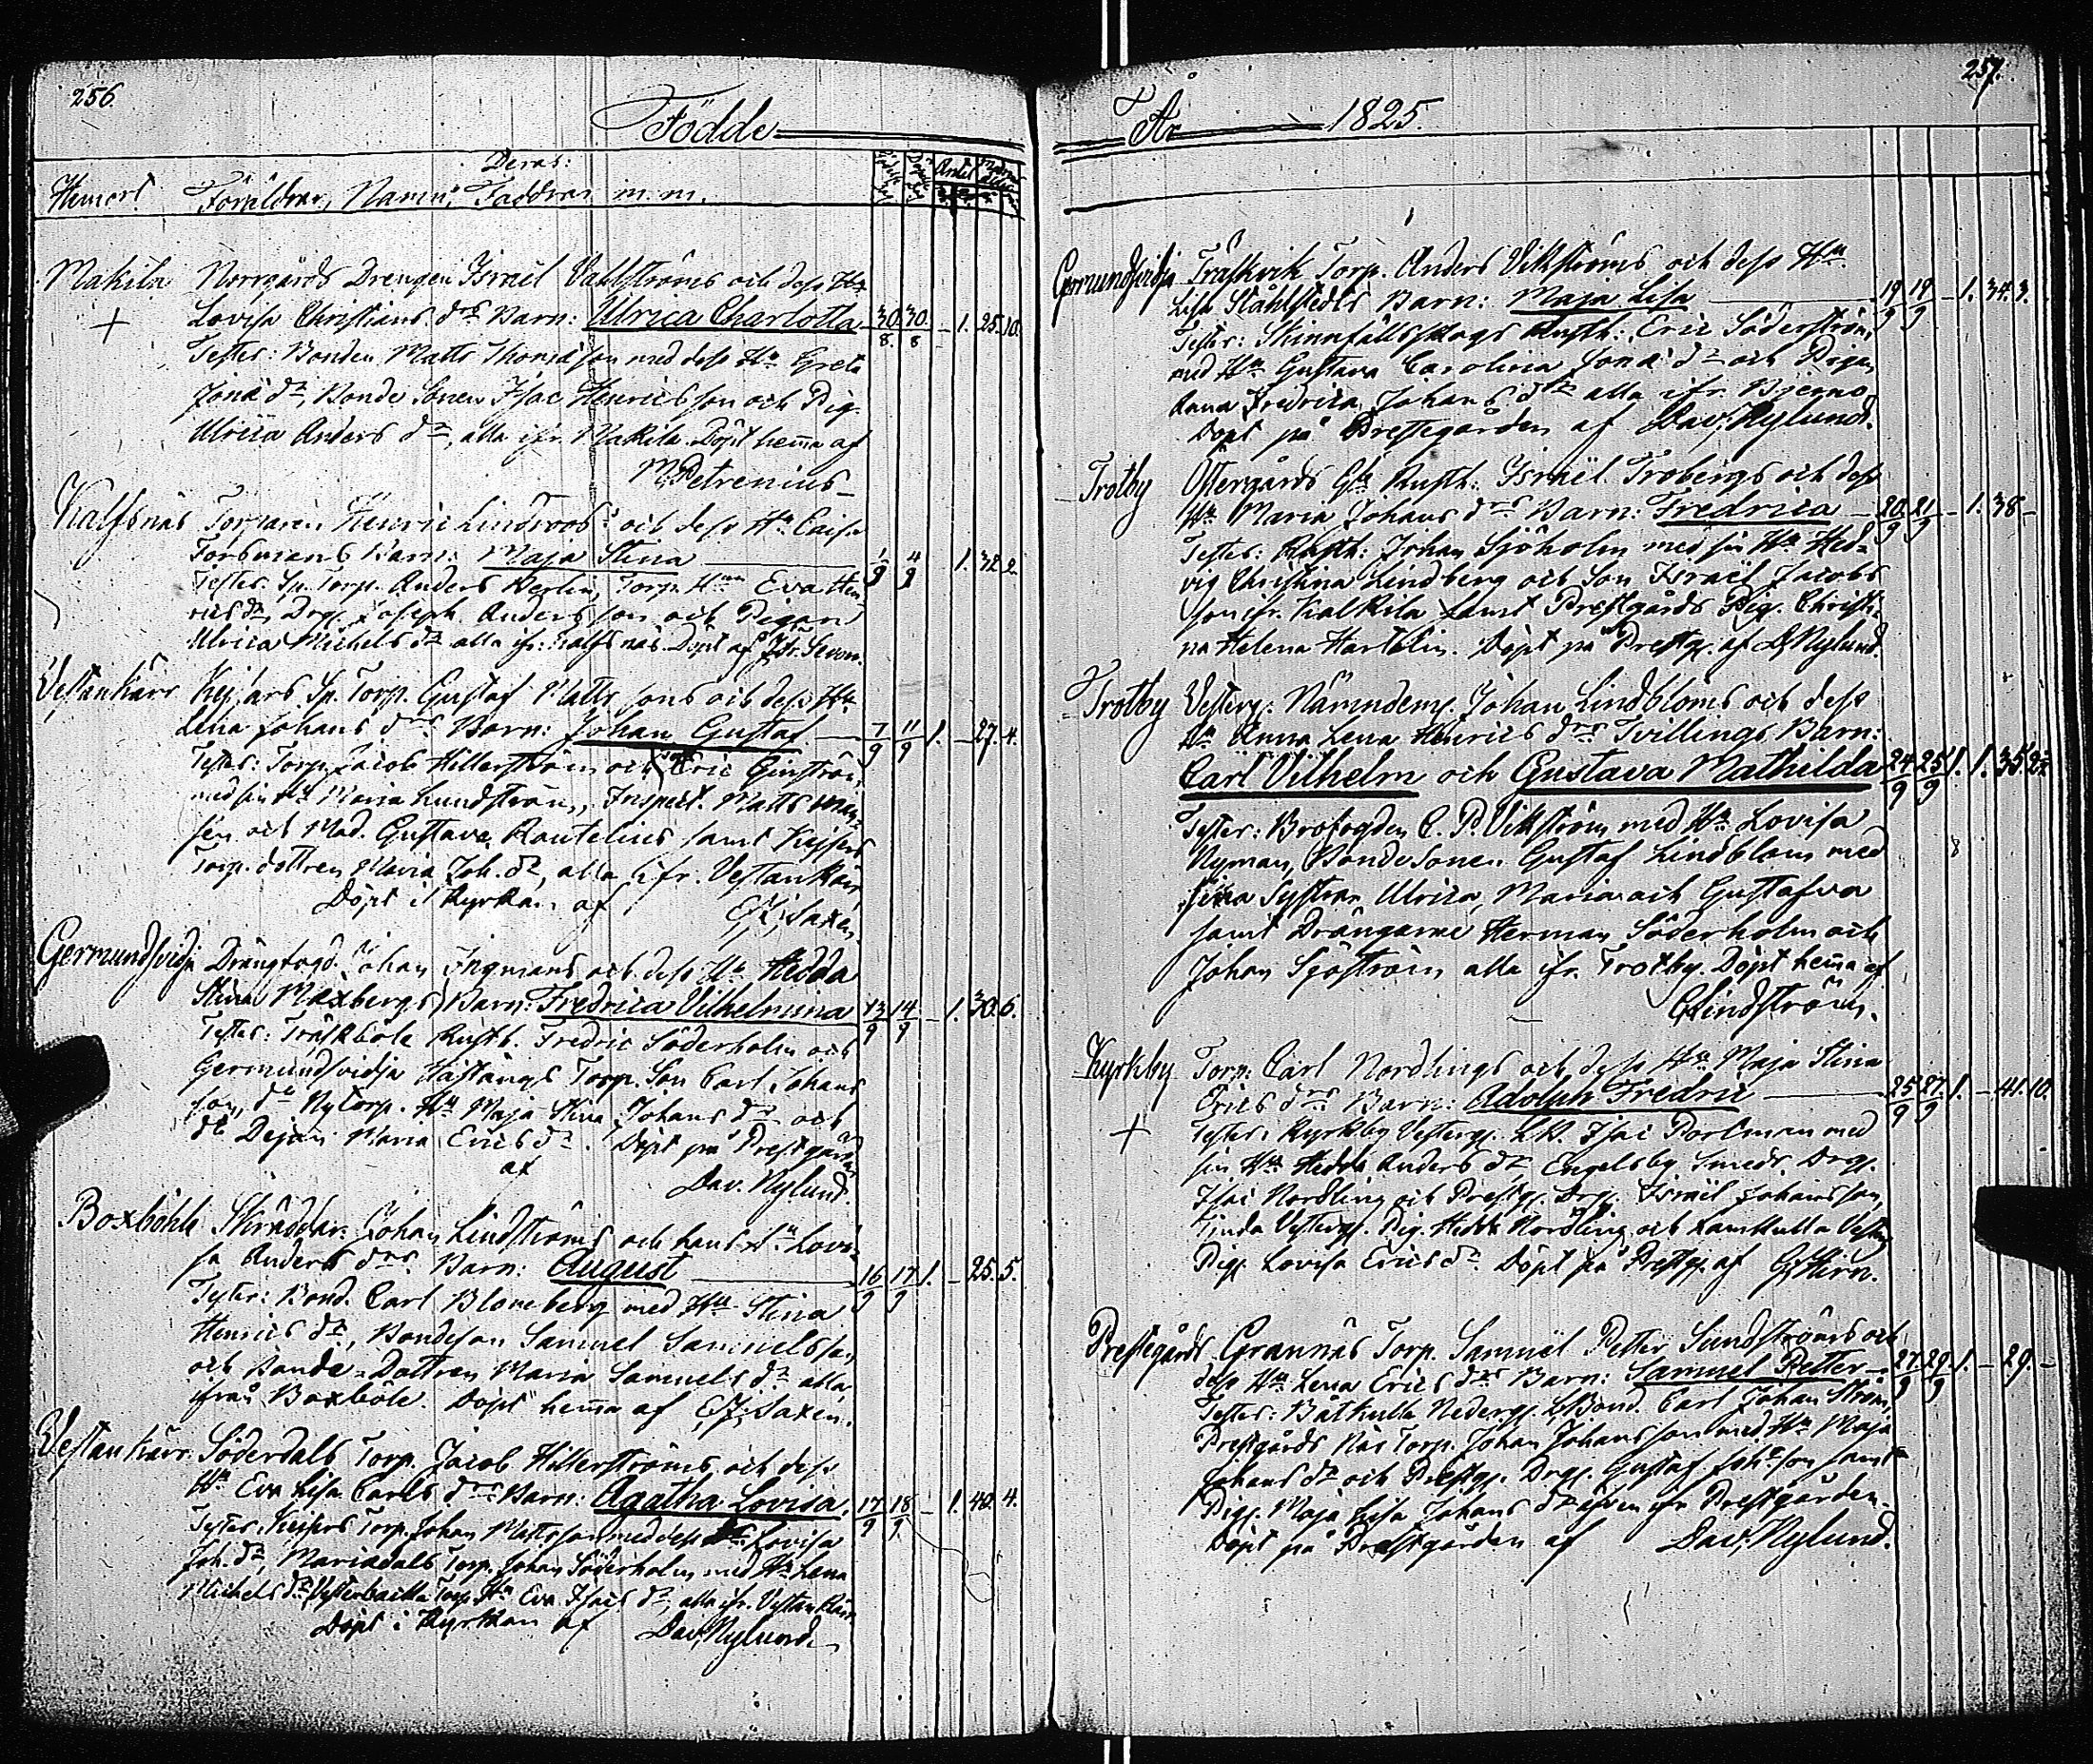 256.
Födde
Deras:
Hemort. Föräldrar, Namn, Faddrar m. m.
Makila Norrgårds Drengen Israel Vahlströms och dess Hu
Lovisa Christians drs Barn: Ulrica Charlotta 30/8 30/8 – 1. 25. 10.
Testes: Bonden Matts Thomasson med dess Hu Greta
Jona dr, Bonde Sonen Isac Henricsson och Pig.
Ulrica Anders dr, alla ifr. Makila. Döpt hema af
M. Petrenius
Kalfsnäs Torparen Henric Lindroos' och dess Hu Caisa
Forsmans Barn: Maja Stina 1/9 4/9 1. 32. 2.
Testes: Sp. Torp. Anders Berlin, Torp. Hun Eva Hen-
rics dr, Drg. Joseph Andersson och Pigan
Ulrica Michels dr alla ifr. Kalfsnäs. Döpt af Sevon.
Vestankärr Keijars Sp. Torp. Gustaf Mattssons och dess Hu
Lena Johans drs Barn: Johan Gustaf 7/9 11/9 1. – 27. 4.
Testes: Torp. Jacob Hillerström och Eric Ginström
med sin Hu Maria Lundström, Inspect. Matts
sen och Mad. Gustava Rautelius samt Keijsers
Torp. dottren Maria Joh. dr, alla ifr. Vestankärr
Döpt i Kyrkan af Saxén.
Germundsvidja Drängfogd. Johan Ingmans och dess Hu Hedda
Stina Maxbergs Barn: Fredrica Vilhelmina 13/9 14/9 – 1. 30. 6.
Testes: Träskböle Rusth. Fredric Söderholm och
Germundsvidja Hästängs Torp. Son Carl Johans
son, do Ny Torp. Hu Maja Stina Johans dr och
do Dejan Maria Erics dr. Döpt på Prestgård
af
Dav. Nylund.
Boxböhle Skräddar. Johan Lindströms och hans Hu Lovi-
sa Anders drs Barn: August 16/9 17/9 1. – 25. 5.
Testes: Bond. Carl Blomberg med Hu Stina
Henrics dr, Bondeson Samuel Samuelsson
och Bonde-Dottren Maria Samuels dr alla
ifrån Boxböle. Döpt hema af Saxén.
Vestankärr Söderdals Torp. Jacob Hillerströms och dess
Hu Eva Lisa Carls drs Barn: Agatha Lovisa. 17/9 18/9 – 1. 40. 4.
Testes: Keijsers Torp. Johan Mattsson med dess Hu Lovisa
Joh. dr, Mariedals Torp. Johan Söderholm med Hu Lena
Michels dr, Vesterbacka Torp. Hu Eva Isacs dr, alla ifr. Vestankärr
Döpt i Kyrkan af Dav. Nylund.
257.
År 1825.
Germundsvidja Träskvik Torp. Anders Vikströms och dess Hu
Lisa Ståhlstedts Barn: Maja Lisa 19/9 19/9 – 1. 34. 3.
Testes: Skinnfällsskogs Rusth. Eric Söderström
med Hu Gustava Carolina Jona dr och Pigan
Anna Fredrica Johans dr alla ifr. Bjerno
Döpt på Prestegården af Dav. Nylund.
Trotby Östergårds Gle Rusth. Israël Trobergs och dess
Hu Maria Johans drs Barn: Fredrica 20/9 21/9 – 1. 38 –
Testes: Rusth. Johan Sjöholm med sin Hu Hed-
vig Christina Lindberg och Son Israël Jacobs
son ifr. Kalkila samt Prestgårds Pig. Christi-
na Helena Hartelin. Döpt på Prestg. af D. Nylund.
Trotby Vesterg. Nämndem. Johan Lindbloms och dess
Hu Anna Lena Henrics drs Tvillings Barn:
Carl Vilhelm och Gustava Mathilda 24/9 25/9 1. 1. 35.
Testes: Brofogden C. P. Vikström med Hu Lovisa
Nyman, Bonde Sonen Gustaf Lindblom med
sina Systrar Ulrica, Maria och Gustafva
samt Drängarne Herman Söderholm och
Johan Sjöström alla ifr. Trotby. Döpt hema af
Lindström.
Kyrkby Torp. Carl Nordlings och dess Hu Maja Stina
Erics drs Barn: Adolph Fredric 25/9 27/9 1. – 41. 10.
Testes: Kyrkby Vesterg. Isac Portman med
sin Hu Hedda Anders dr Engelsby Smeds Drg.
Isac Nordling och Prestg. Drg. Israël Johansson,
Vesterg. Pig. Hedda Nordling och Lamkulla Vesterg
Pig. Lovisa Erics dr. Döpt på Prestg. af G. Hirn.
Prestegårds Grannäs Torp. Samuel Petter Sundströms och
dess Hu Lena Erics drs Barn: Samuel Petter 27/9 29/9 1. – 29. –
Testes: Båtkulla Nederg. Bond. Carl Johan Ström,
Prestgårds Näs Torp. Johan Johansson med Hu Maja
Johans dr och Prestg. Drg. Gustaf Johsson samt
Pig. Maja Lisa Johans dr äfven ifr Prestgården.
Döpt på Prestgården af Dav. Nylund.